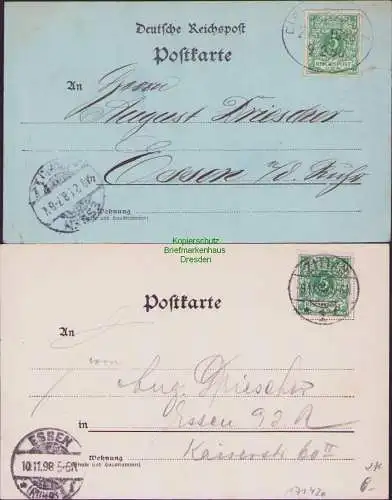 Deutsche Reichspost
Postkarte
5
REICHSPOST
An
Herrn
August Driescher
Essen a/d. Ruhr
Wohnung
(Straße und Hausnummer)
Kopierschutz
Briefmarkenhaus
Dresden
Postkarte
5
An
Aug. Driescher
in
Essen
Wohnung
(Straße und Hausnummer)
Kaiserstr 60 II
ESSEN
10.11.98 5-6N
(RUHR)
171420